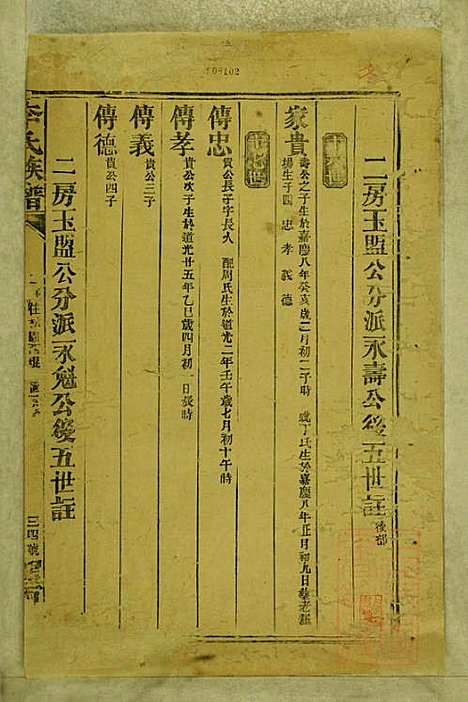 二房玉盟公分派永壽公後五世註 後部
家貴 壽公之子生於嘉慶八年癸亥歲二月初二子時
生於嘉慶八年正月初九日
生子四 忠 孝 義 德
傳忠 貴公長子字長久 配周氏生於道光二年壬午歲七月初十午時
傳孝 貴公次子生於道光廿五年乙巳歲四月初一日辰時
傳義 貴公三子
傳德 貴公四子
二房玉盟公分派永魁公後五世註
李氏族譜
三四號